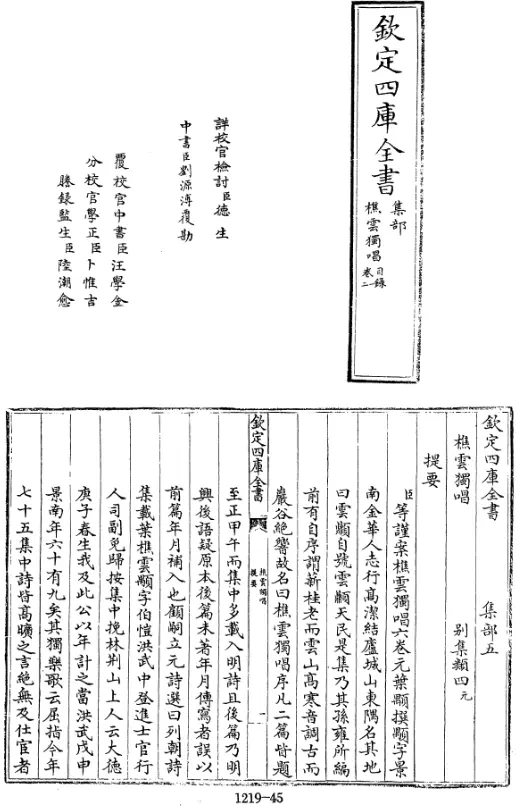 欽定四庫全書
集部
樵雲獨唱
目錄
卷一
詳校官檢討臣德生
中書臣劉源溥覆勘
覆校官中書臣汪學金
分校官學正臣卜惟吉
謄錄監生臣陸潮愈
欽定四庫全書 集部五
樵雲獨唱 別集類四元
提要
臣等謹案樵雲獨唱六卷元葉顒撰顒字景
南金華人志行髙潔結廬城山東隅名其地
曰雲顛自號雲顛天民是集乃其孫雍所編
前有自序謂薪桂老而雲山髙寒音調古而
巖谷絶響故名曰樵雲獨唱序凡二篇皆題
欽定四庫全書
樵雲獨唱
提要
一
至正甲午而集中多載入明詩且後篇乃明
興後語疑原本後篇未著年月傳寫者誤以
前篇年月補入也顧嗣立元詩選曰列朝詩
集載葉樵雲顒字伯愷洪武中登進士官行
人司副免歸按集中挽林荆山上人云大德
庚子春生我及此公以年計之當洪武戊申
景南年六十有九矣其獨樂歌云屈指今年
七十五集中詩皆髙曠之言絶無及仕宦者
1219-45